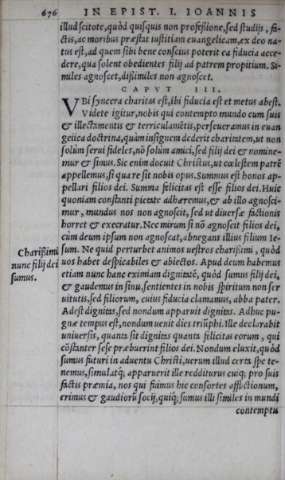 676 IN EPIST. I. IOANNIS
illud scitote, quòd quisquis non professione, sed studijs, fa-
ctis, ac moribus præstat iustitiam euangelicam, ex deo na-
tus est, ad quem sibi bene conscius poterit ea fiducia acce-
dere, qua solent obedientes filij ad patrem propitium. Si-
miles agnoscet, dissimiles non agnoscet.
CAPVT III.
VBi syncera charitas est, ibi fiducia est et metus abest.
Videte igitur, nobis qui contempto mundo cum suis
& illectamentis & terriculamētis, perseueramus in euan
gelica doctrina, quàm insignem dederit charitatem, ut non
solùm serui fideles, nō solùm amici, sed filij dei & nomine-
mur & simus. Sic enim docuit Christus, ut cœlestem patrē
appellemus, si qua re sit nobis opus. Summus est honos ap-
pellari filios dei. Summa felicitas est esse filios dei. Huic
quoniam constanti pietate adhæremus, & ab illo agnosci-
mur, mundus nos non agnoscit, sed ut diuersæ factionis
horret & execratur. Nec mirum si nō agnoscit filios dei,
cum deum ipsum non agnoscat, abnegans illius filium Ie-
sum. Ne quid perturbet animos uestros charissimi, quòd
Charissimi
nunc filij dei
sumus.
uos habet despicabiles & abiectos. Apud deum habemus
etiam nunc hanc eximiam dignitatē, quòd sumus filij dei,
& gaudemus in sinu, sentientes in nobis spiritum non ser
uitutis, sed filiorum, cuius fiducia clamamus, abba pater.
Adest dignitas, sed nondum apparuit dignitas. Adhuc pu-
gnæ tempus est, nondum uenit dies triūphi. Ille declarabit
uniuersis, quanta sit dignitas quanta felicitas eorum, qui
cōstanter sese præbuerint filios dei. Nondum eluxit, quòd
sumus futuri in aduentu Christi, uerum illud certa spe te-
nemus, simulatq; apparuerit ille redditurus cuiq; pro suis
factis præmia, nos qui fuimus hic consortes afflictionum,
erimus & gaudiorū socij, quiq; fuimus illi similes in mundi
contemptu